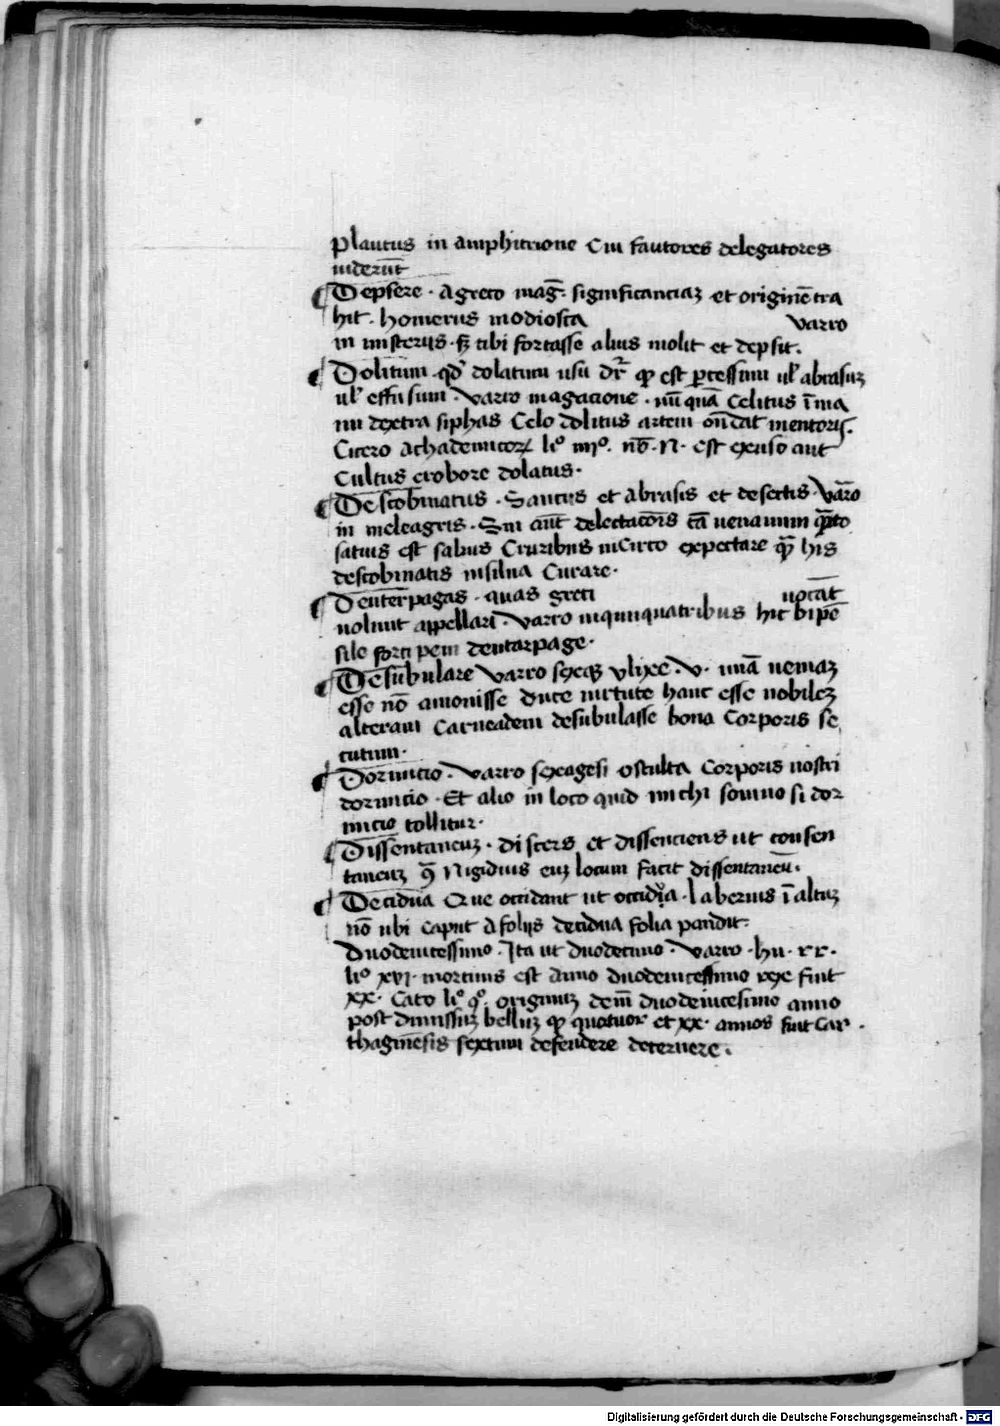 plautus in amphitrione Cui fautores delegatores
uiderūt
Depsere · A greco mag̅ · significanciaꝫ et originē tra
hit · homerus modiosca varro
in misteriis · sꝫ tibi fortasse alius molit et depsit ·
Dolitum · qd̄ dolatum usu dr̄ ꝙ est ꝑcessimi ul̓ abrasuꝫ
ul̓ effusum · varro magacione · nū quā Celitus ī ma
nu dextra siphas Celo dolitus artem on̄dat mentoris ·
Cicero Achademicoꝝ li° iiii° · nō · N · est exuso aut
Cultus erobore dolatus ·
Descobinatus · Saucius et Abrasis et desectis · Varo
in meleagris · Sin aut̄ delectacōis cā uenanum quāto
satius est saluis Cruribus in Circo expectare quā his
descobinatis in silua Curare ·
Denterpagas · quas greci uocāt
uolunt appellari · Varro inquinquatribus hic bipē
sile forcipem dentarpage ·
Desubulare Varro sexqꝫ Vlixe · V · unā uiemaꝫ
esse nō amonisse duce uirtute hanc esse nobileꝫ
alteram Carneadem desubulasse bona Corporis se
cutum ·
Dormicio · Varro sexagesi osculta Corporis nostri
dormicio · Et alio in loco quid michi somno si dor
micio tollitur ·
Dissentaneuꝫ · discers et dissenciens ut consen
taneuꝫ ꝙ̄ Nigidius eiꝫ locum facit dissentaneū ·
Decidua Que occidant ut occidua · laberius ī altuꝫ
nō ubi caput A foliis decidua folia pandit ·
Duodeuicessimo · Ita ut duodecimo · Varro · hu · rr ·
li° xvi · mortuus est Anno duodeuicessimo rex fuit
xx · Cato li° q° · originuꝫ dem̄ duodeuicesimo anno
post dimissuꝫ belluꝫ ꝙ quatuor et xx · annos fuit Car
thaginēsis sextum defendere decernere ·
Digitalisierung gefördert durch die Deutsche Forschungsgemeinschaft - DFG